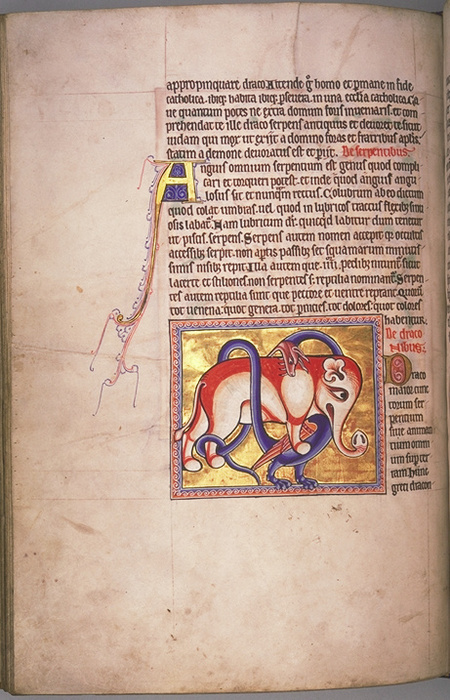 appropinquare draco. Attende g̊ homo et pmane in fide
catholica. ibiq; habita ibiq; pseuera. in una eccl̄ia catholica. Ca
ue quantum potes ne extra domum foris inueniaris. et com
prehendat te ille draco serpens antiquus et deuoret te. sicut
iudam qui mox ut exiuit a domino foras et fratribus apl̄is.
statim a demone deuoratus est et periit. De serpentibus.
Anguis omnium serpentium est genus quod compli
cari et torqueri potest. et inde quod anguis angu
losus sit et nunq̄m rectus. Colubrum ab eo dictum
quod colat umbras. uel quod in lubricos tractus flexibus sinu
osis labat̄. Nam lubricum dr̄. quicq̄d labitur dum tenetur
ut piscis. serpens. Serpens autem nomen accepit q̄ occultis
accessib; serpit. non aptis passib; set squamarum minutis
simis nisib; repit. Illa autem que .iiii. pedib; nitunt̄. sicut
lacerte et stiliones. non serpentes s; reptilia nominant̄. Serpen
tes autem reptilia sunt que pectore et uentre reptant. Quorū
tot uenena. quot genera. tot pnicies. tot dolores. quot colores
habentur.
De draco
nibus.
Draco
maior cunc
torum ser
pentium
siue animan
tium omni
um sup ter
ram. hunc
greci dracon